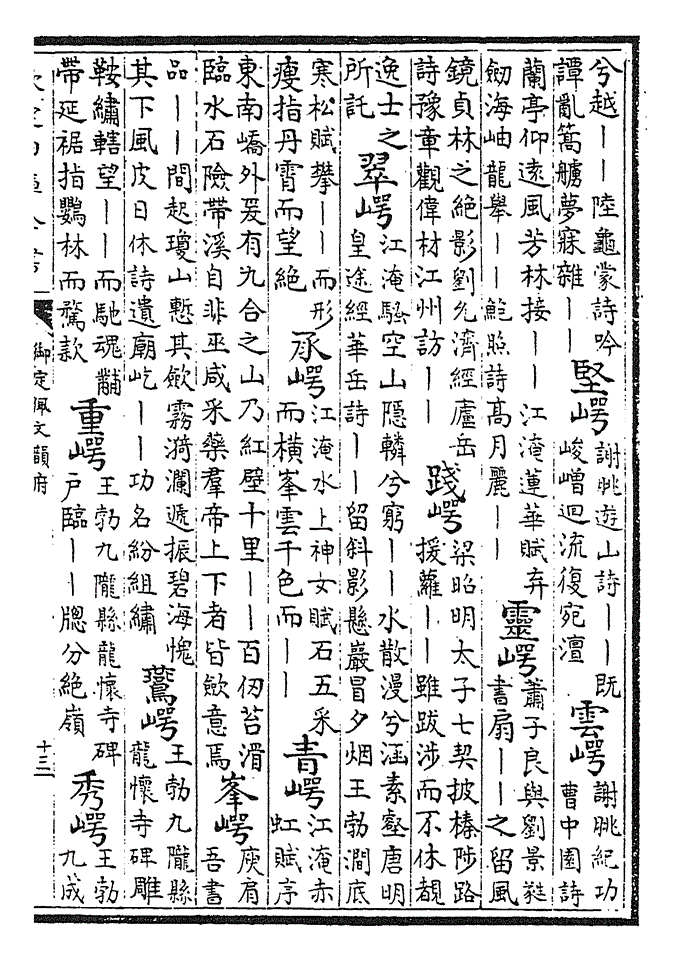 兮越——陸龜蒙詩吟
譚亂篙艣夢寐雜——
堅崿
謝眺遊山詩——既
崚嶒迴流復宛澶
雲崿
謝眺紀功
曹中園詩
蘭亭仰遠風芳林接——江淹蓮華賦弃
劒海岫龍舉——鮑照詩高月麗——
靈崿
蕭子良與劉景蕤
書扇——之留風
鏡貞林之絶影劉允濟經廬岳
詩豫章觀偉材江州訪——
踐崿
梁昭明太子七契披榛陟路
援蘿——雖跋涉而不休覩
逸士之
所託
翠崿
江淹騷空山隱轔兮窮——水散漫兮涵素壑唐明
皇途經華岳詩——留斜影懸巖冒夕烟王勃澗底
寒松賦攀——而形
瘦指丹霄而望絶
承崿
江淹水上神女賦石五采
而橫峯雲千色而——
青崿
江淹赤
虹賦序
東南嶠外爰有九合之山乃紅壁十里——百仞苔滑
臨水石險帶溪自非巫咸采藥羣帝上下者皆歛意焉
峯崿
庾肩
吾書
品——間起瓊山慙其歛霧漪瀾遞振碧海愧
其下風皮日休詩遺廟屹——功名紛組繡
鷲崿
王勃九隴縣
龍懷寺碑雕
鞍繡轄望——而馳魂黼
帶延裾指鸚林而駕款
重崿
王勃九隴縣龍懷寺碑
戶臨——牕分絶嶺
秀崿
王勃
九成
御定佩文韻府
十三